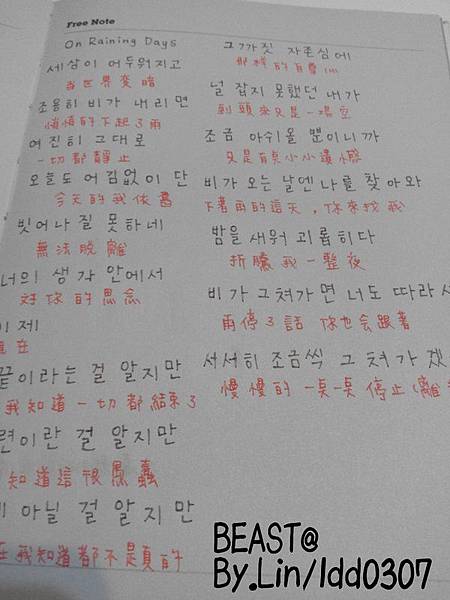 Free Note
On Raining Days
세상이 어두워지고
當世界变暗
조용히 비가 내리면
悄悄的下起了雨
여진히 그대로
一切都靜止
오늘도 어김없이 단
今天的我依舊
빗어나 질 못하네
無法脫離
너의 생각 안에서
对你的思念
이제
在
끝이라는 걸 알지만
我知道一切都結束了
련이란 걸 알지만
知道這很愚蠢
아닐 걸 알지만
在我知道都不是真的
그까짓 자존심에
那樣的自尊心
널 잡지 못했던 내가
到頭來又是一場空
조금 아쉬울 뿐이니까
又是有点小小遺憾
비가 오는 날엔 나를 찾아와
下著雨的這天，你來找我
밤을 새워 괴롭히다
折騰我一整夜
비가 그쳐가면 너도 따라서
雨停了話 你也会跟著
서서히 조금씩 그쳐가겠
慢慢的一点一点停止(離
BEAST@
By.Lin/ldd0307